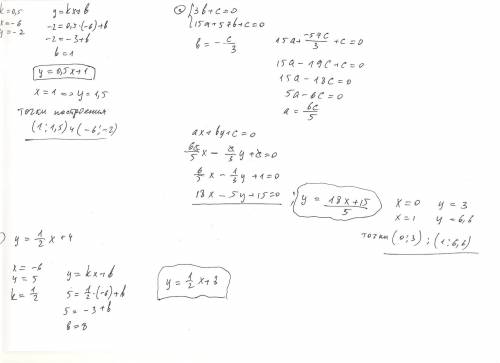 k=0,5 y=kx+b
x=-6 -2=0,5·(-6)+b
y=-2 -2=-3+b
b=1
y=0,5x+1
x=1 => y=1,5
точки построения
(1;1,5) и (-6;-2)
{3b+c=0
{15a+57b+c=0
b=-c/3 15a+(-57c)/3+c=0
15a-19c+c=0
15a-18c=0
5a-6c=0
a=6c/5
ax+by+c=0
6c/5 x - c/3 y+c=0
6/5 x - 1/3 y+1=0
18x-5y+15=0 ; y=(18x+15)/5
x=0 y=3
x=1 y=6,6
точки (0;3); (1;6,6)
) y=1/2 x+4
x=-6
y=5 y=kx+b
k=1/2 5=1/2·(-6)+b
5=-3+b
b=8
y=1/2 x+8